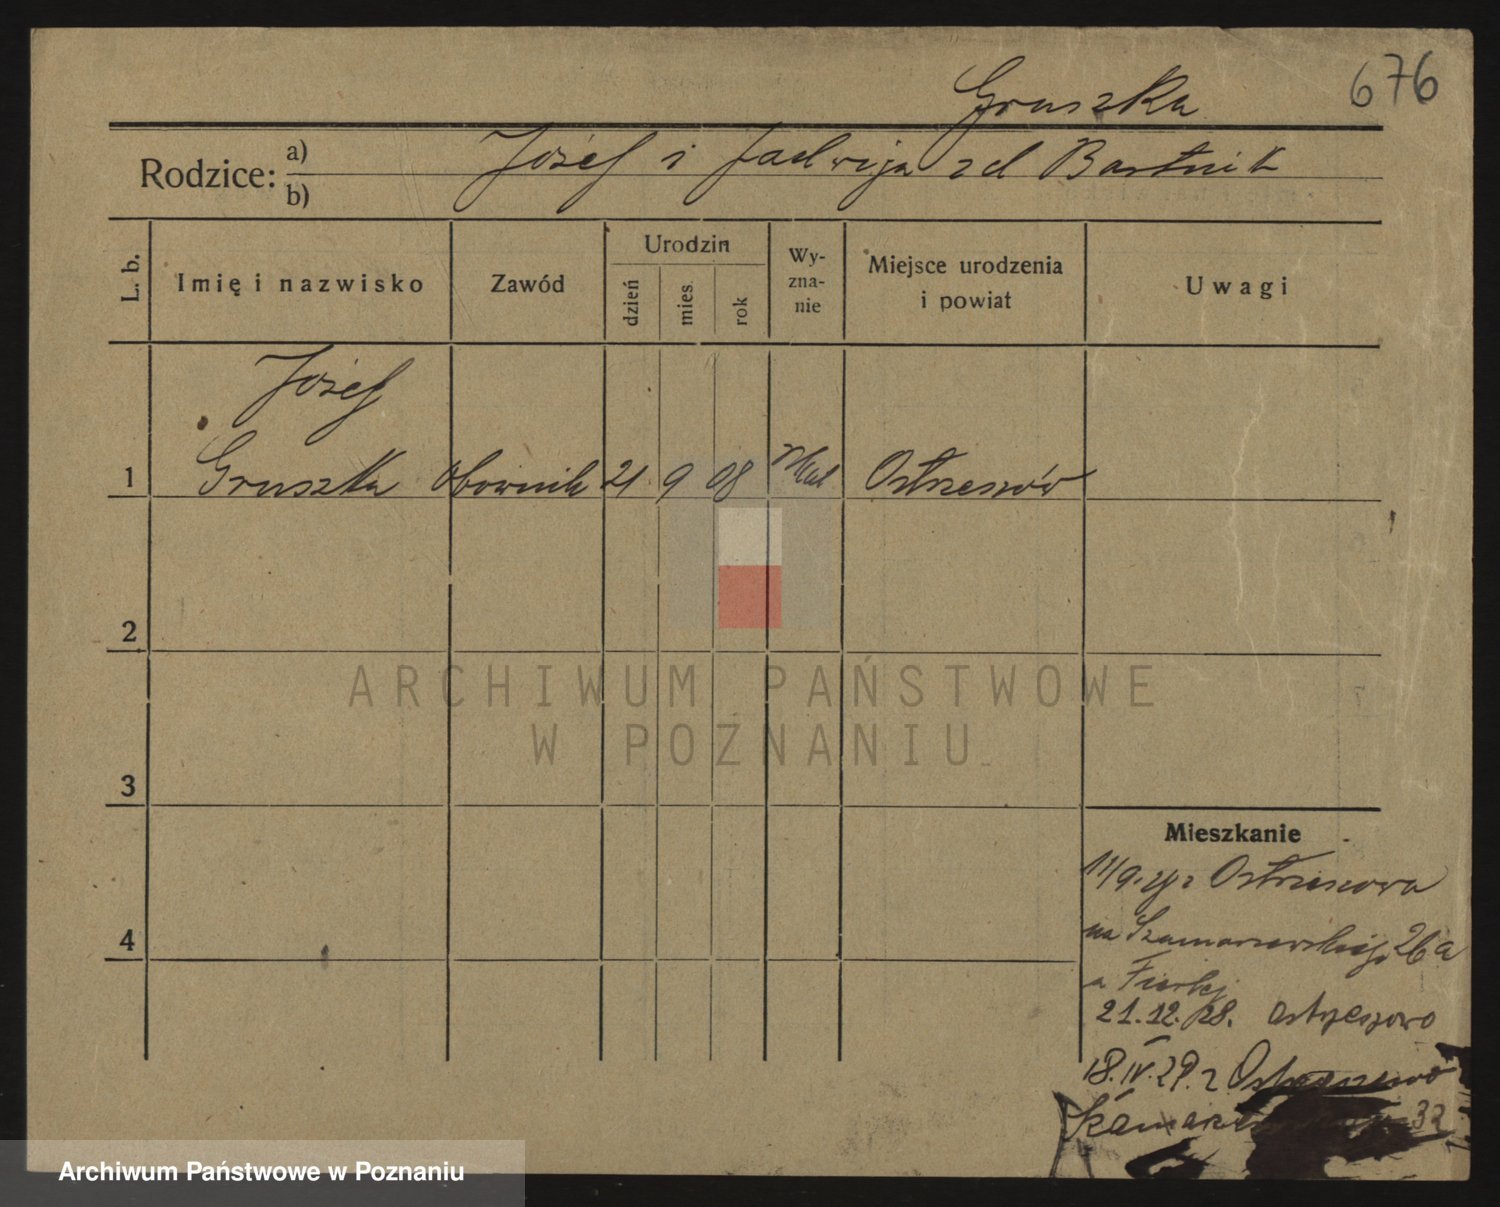 676
Gruszka
Rodzice: a) b)
Józef i Jadwiga z d Bartnik
L. b.
Imię i nazwisko
Zawód
Urodzin
dzień
mies.
rok
Wy-
zna-
nie
Miejsce urodzenia
i powiat
Uwagi
Józef
1 Gruszka obownik 21 9 08 Kat Ostrzeszów
2
3
4
ARCHIWUM PAŃSTWOWE
W POZNANIU
Mieszkanie
11/9. z Ostrzeszowa
na Szamarzewskiego 26a
a
21.12.28. Ostrzeszowo
18.IV.29. z Ostrzeszowo
32
Archiwum Państwowe w Poznaniu